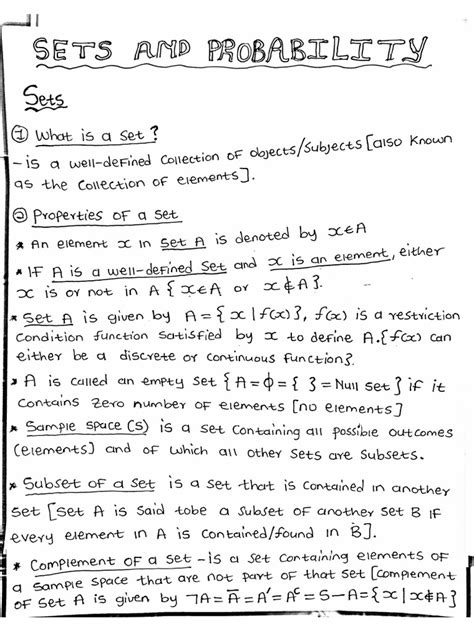 SETS AND PROBABILITY
Sets
① What is a set?
- is a well-defined collection of objects/subjects [also known
as the collection of elements].
② Properties of a set
* An element x in set A is denoted by x∈A
* IF A is a well-defined set and x is an element, either
x is or not in A { x∈A or x∉A }.
* Set A is given by A = { x | f(x) }, f(x) is a restriction
condition function satisfied by x to define A. { f(x) can
either be a discrete or continuous function }.
* A is called an empty set { A = ϕ = { } = Null set } if it
contains zero number of elements [no elements]
* Sample space (S) is a set containing all possible outcomes
(elements) and of which all other sets are subsets.
* Subset of a set is a set that is contained in another
set [set A is said tobe a subset of another set B if
every element in A is contained/found in B].
* Complement of a set - is a set containing elements of
a sample space that are not part of that set [complement
of set A is given by ¬A = A̅ = A' = Aᶜ = S-A = { x | x∉A }